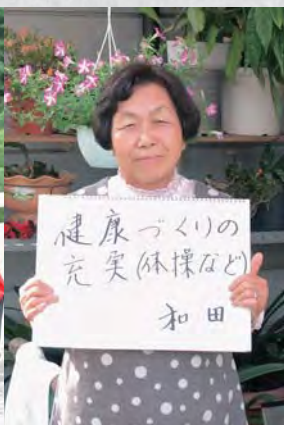 健康づくりの
充実(体操など)
和田